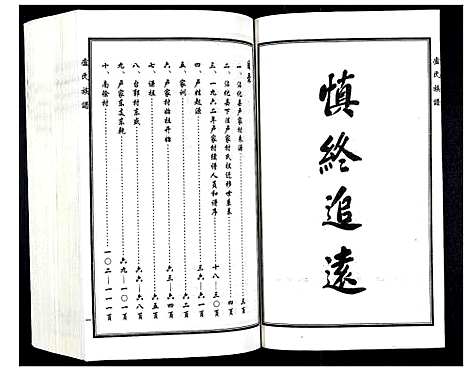 慎終追遠
目录
一、沾化县卢家村来源……三页
二、沾化县下洼卢家村氏祖迁移世系表……四页
三、一九六二年卢家村续谱人员和谱序……十八—三〇页
四、卢植起源……三六—六一页
五、家训……六二页
六、卢家村始祖丹始……六三—六四页
七、谱枝……六五页
八、台郭村东威……六六—六八页
九、卢家东支东乾……六九—一〇一页
十、南徐村……一〇二—一一一页
卢氏族谱